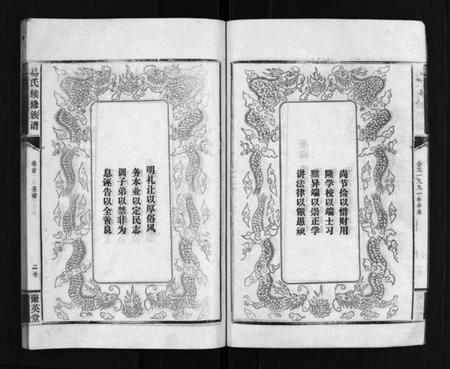 尚节俭以惜财用
隆学校以端士习
黜异端以崇正学
讲法律以儆愚顽
明礼让以厚俗风
务本业以定民志
训子弟以禁非为
息诬告以全善良
公元一九九一年辛未
易氏续修族谱
卷首
圣谕
二号
聚英堂